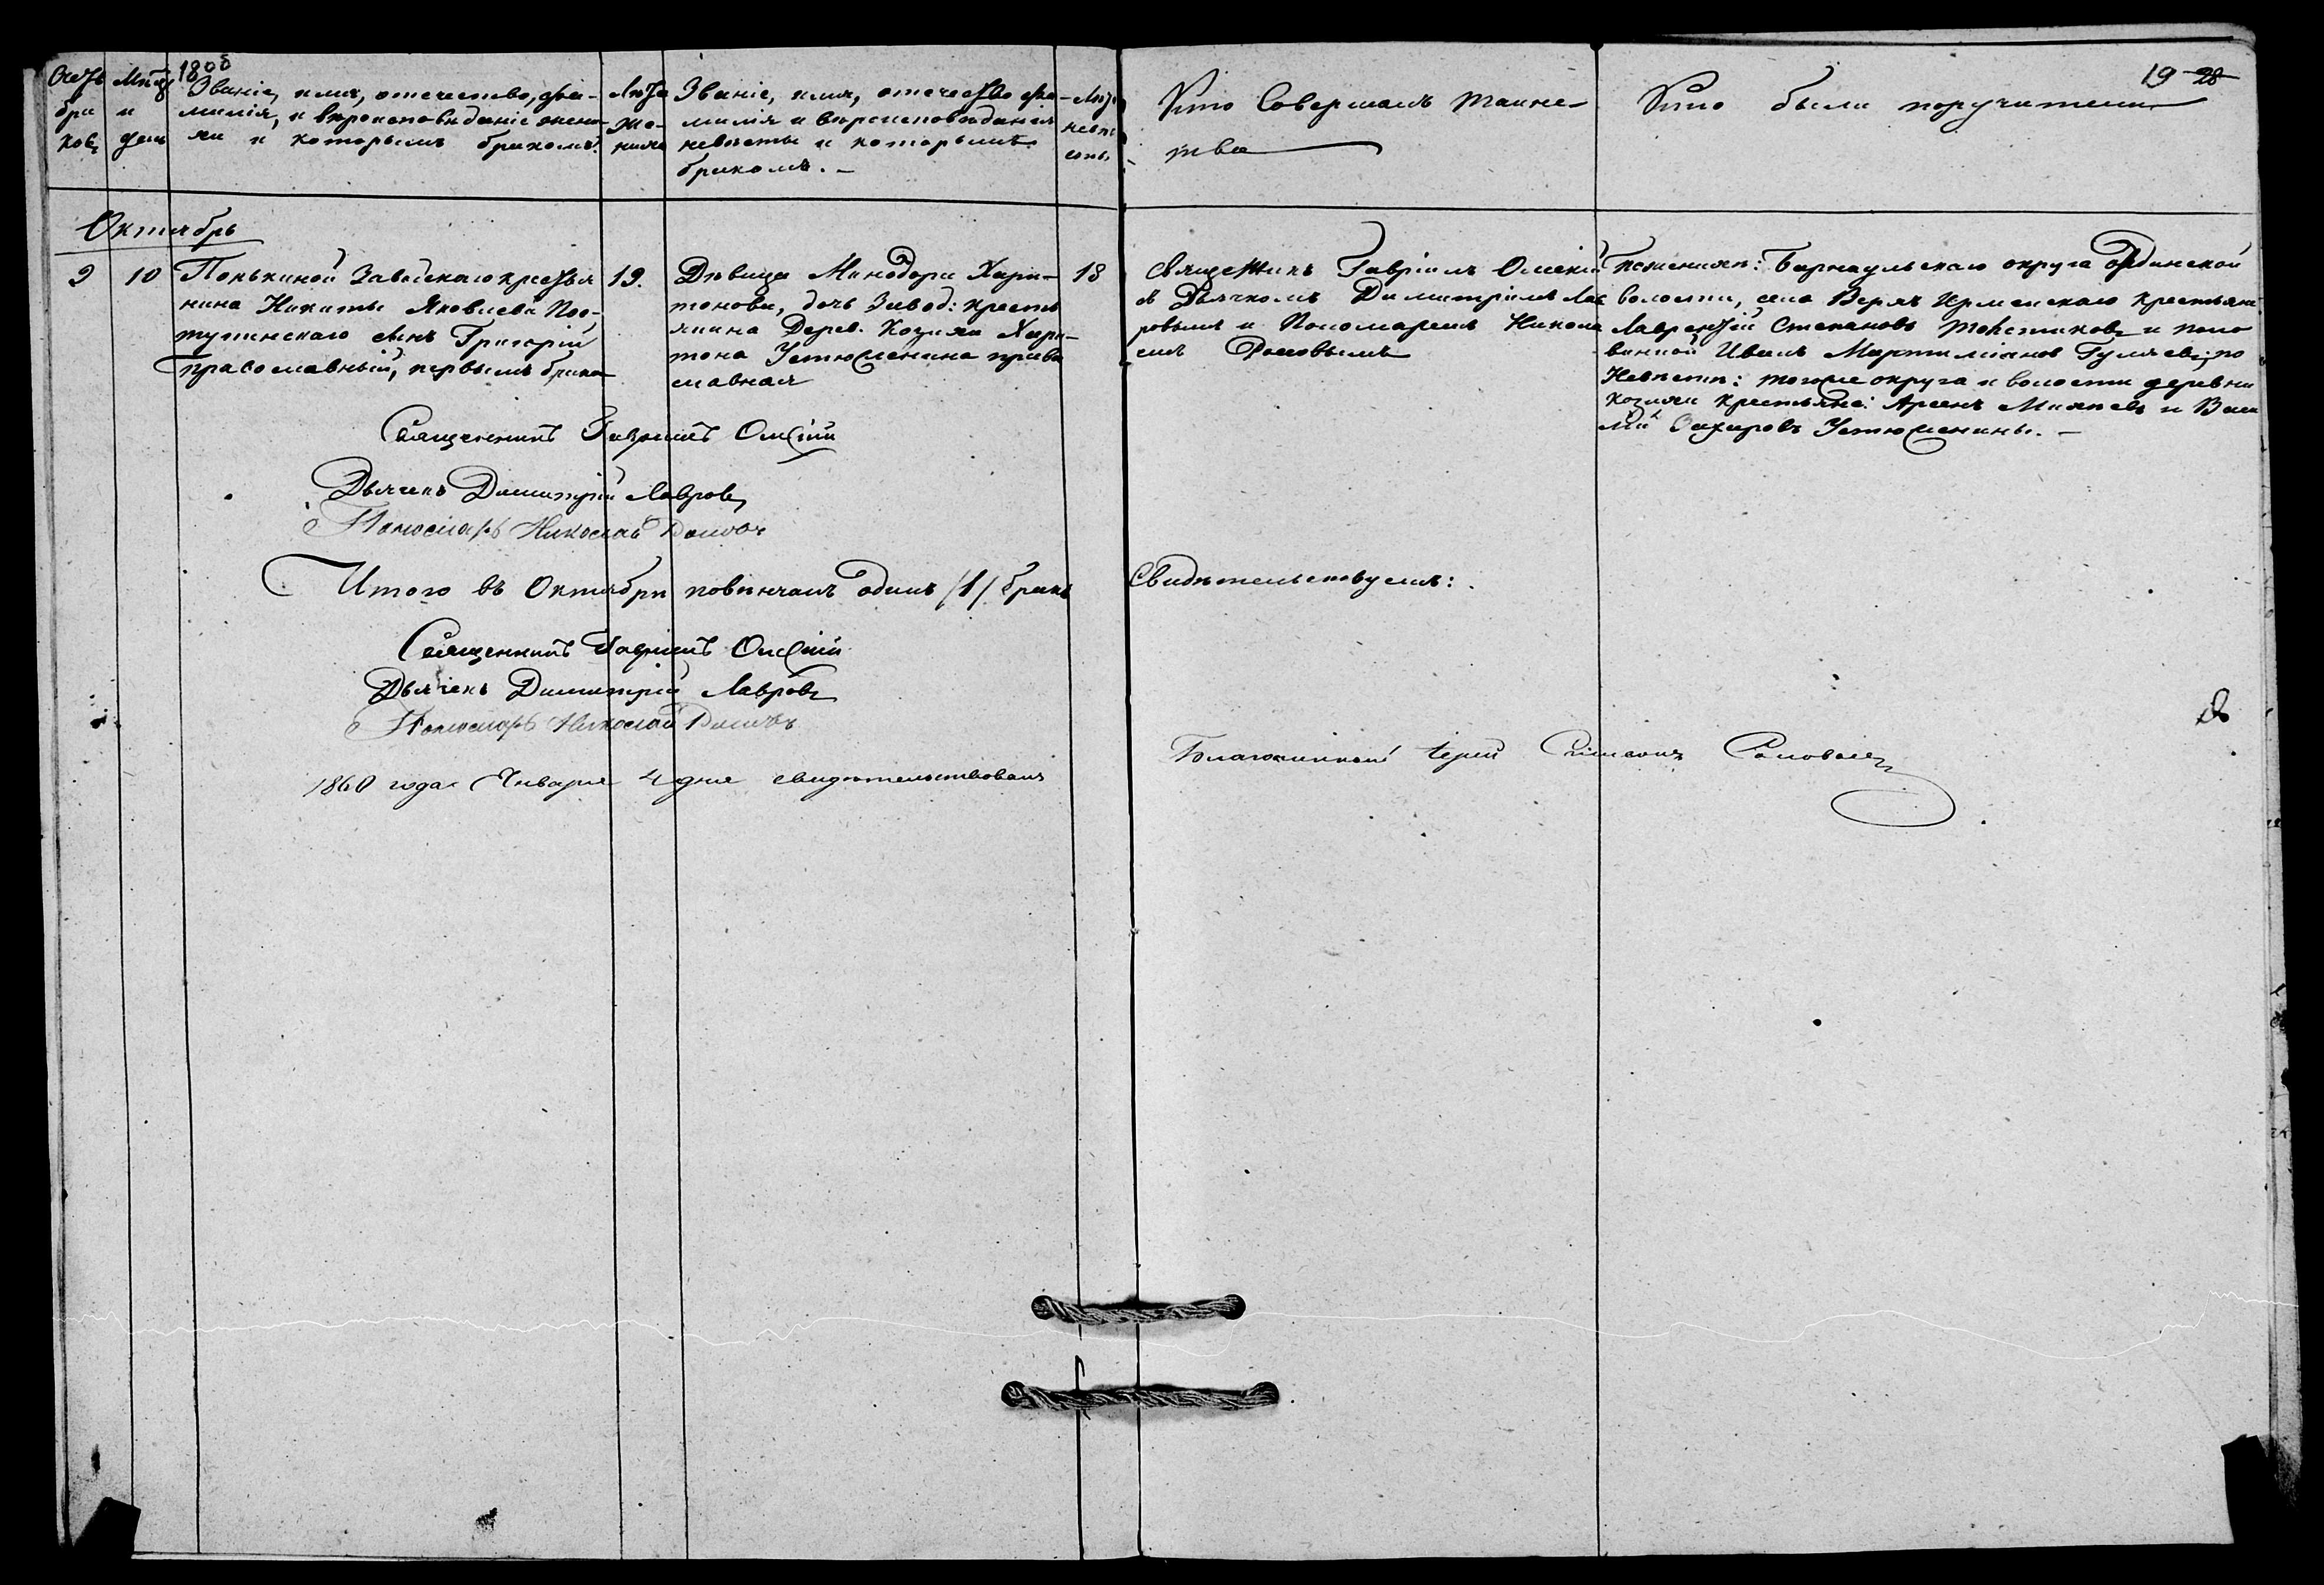 180
19 28
Счетъ браковъ
Мѣсяцъ и день
Званіе, имя, отчество, фа-
милія, и вѣроисповѣданіе жени-
ха и которымъ бракомъ.
Лѣта
же-
ниха
Званіе, имя, отечество фа-
милія и вѣроисповѣданія
невѣсты и которымъ
бракомъ. —
Лѣта
невѣ
сты
Кто Совершалъ таинс-
тва
Кто были поручители
Октябрь
9
10
Завадскаго крестья
нина Никиты Яковлева Поо-
тупинскаго сынъ Григорій
Православный, первымъ брако
19.
Дѣвица Минодора Хари-
тонова, дочь Завод: кресть
янина Дерев. Козихи Хари-
тона Устюжанина право
славная
18
Священникъ Гавріилъ Омскій
съ Дьячкомъ Димитріемъ Лав
ровымъ и Пономаремъ Никола
емъ
По женихѣ: Барнаульскаго округа Ординской
волости, села Верхъ Ирменскаго крестьяне
Лаврентій Степановъ Толстиковъ и поло
винной Иванъ Мартиміановъ Гуляевъ; по
Невѣстѣ: тогоже округа и волости деревни
Козихи крестьяне: Арсенъ и Васи
лій Захаровъ Устюжанины. —
Священникъ Гавріилъ Омскій
Дьячекъ Димитрій Лавровъ
Пономарь Николай
Итого въ Октябрѣ повѣнчанъ одинъ /1/ бракъ
Свидѣтельствуемъ:
Священникъ Гавріилъ Омскій
Дьячекъ Димитрій Лавровъ
Пономарь Николай
1860 года Января 4 дня свидѣтельствовалъ
Благочинный Іерей Симеонъ Соловьевъ